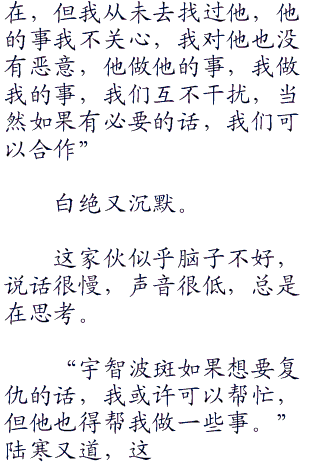 在，但我从未去找过他，他
的事我不关心，我对他也没
有恶意，他做他的事，我做
我的事，我们互不干扰，当
然如果有必要的话，我们可
以合作”
白绝又沉默。
这家伙似乎脑子不好，
说话很慢，声音很低，总是
在思考。
“宇智波斑如果想要复
仇的话，我或许可以帮忙，
但他也得帮我做一些事。”
陆寒又道，这